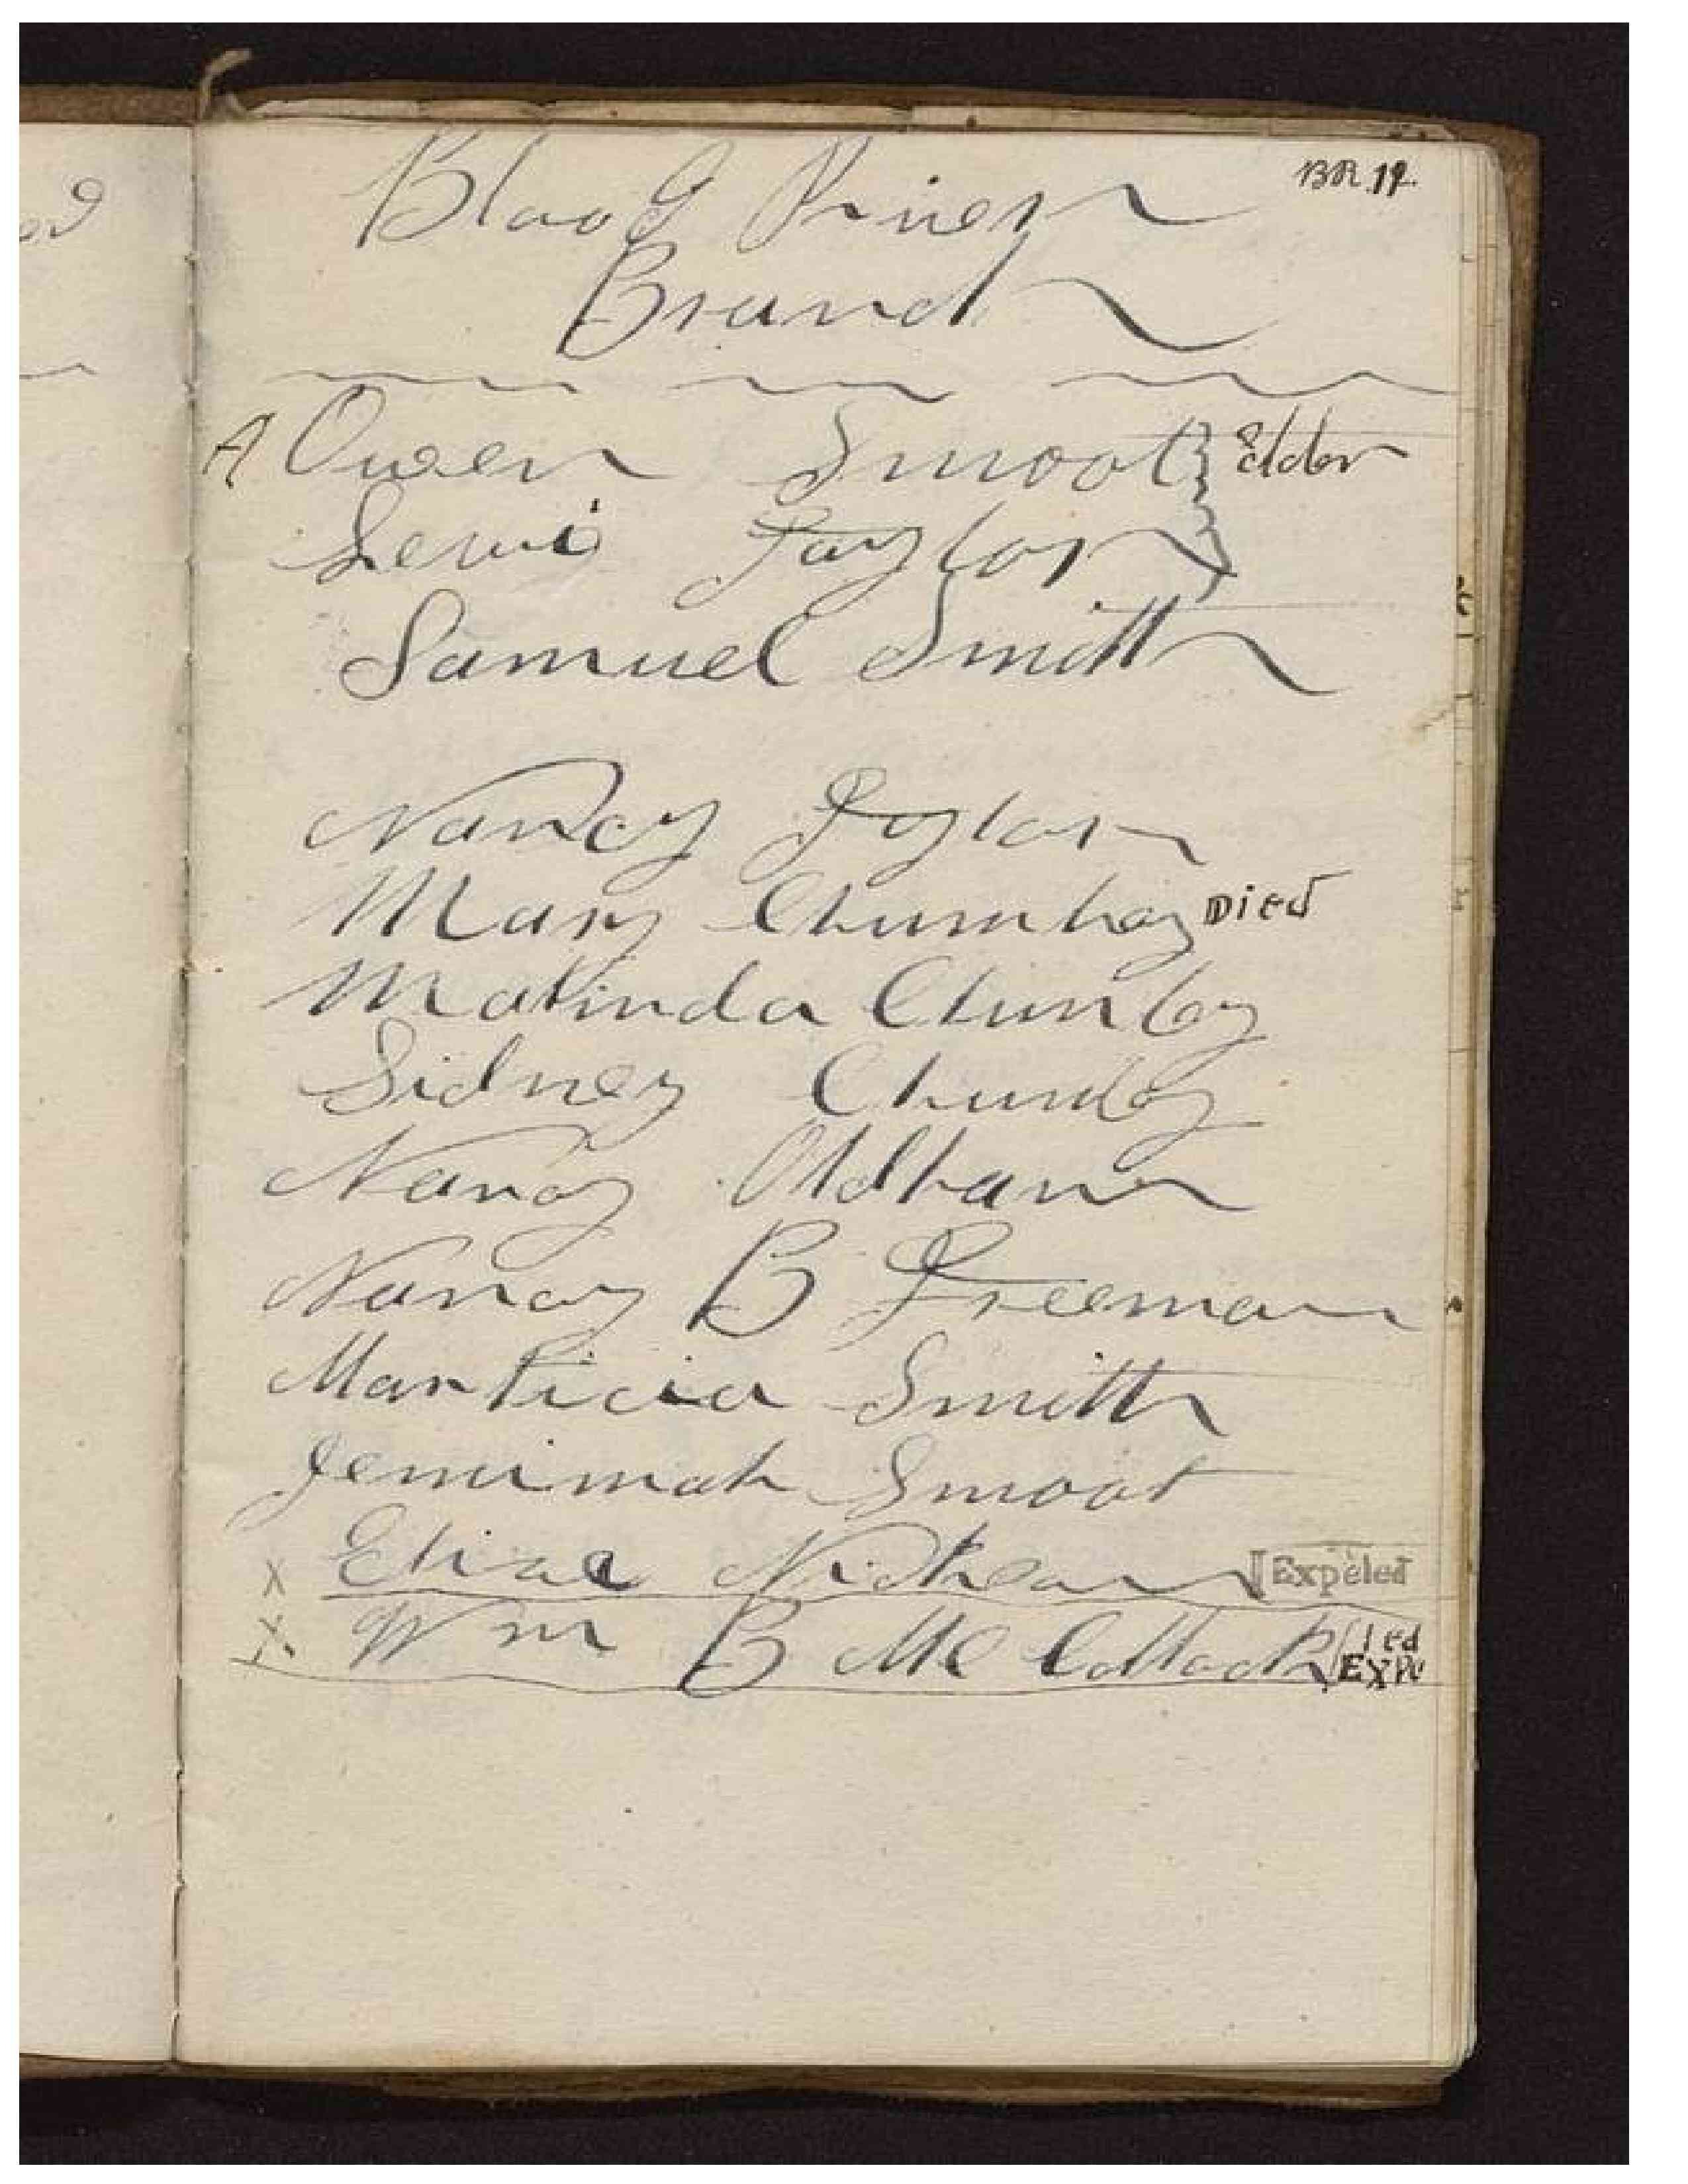 BR 12.
Blood River
Branch
A Owen Smoot } elder
Lewis Taylor }
Samuel Smith
Nancy Taylor
Mary Chumbey Died
Malinda Chumby
Sidney Chumby
Nancy Oldham
Nancy B Freeman
Marticia Smith
Jemimah Smoot
x Elizae [Expeled
x Wm B Mc Collock [Expelled